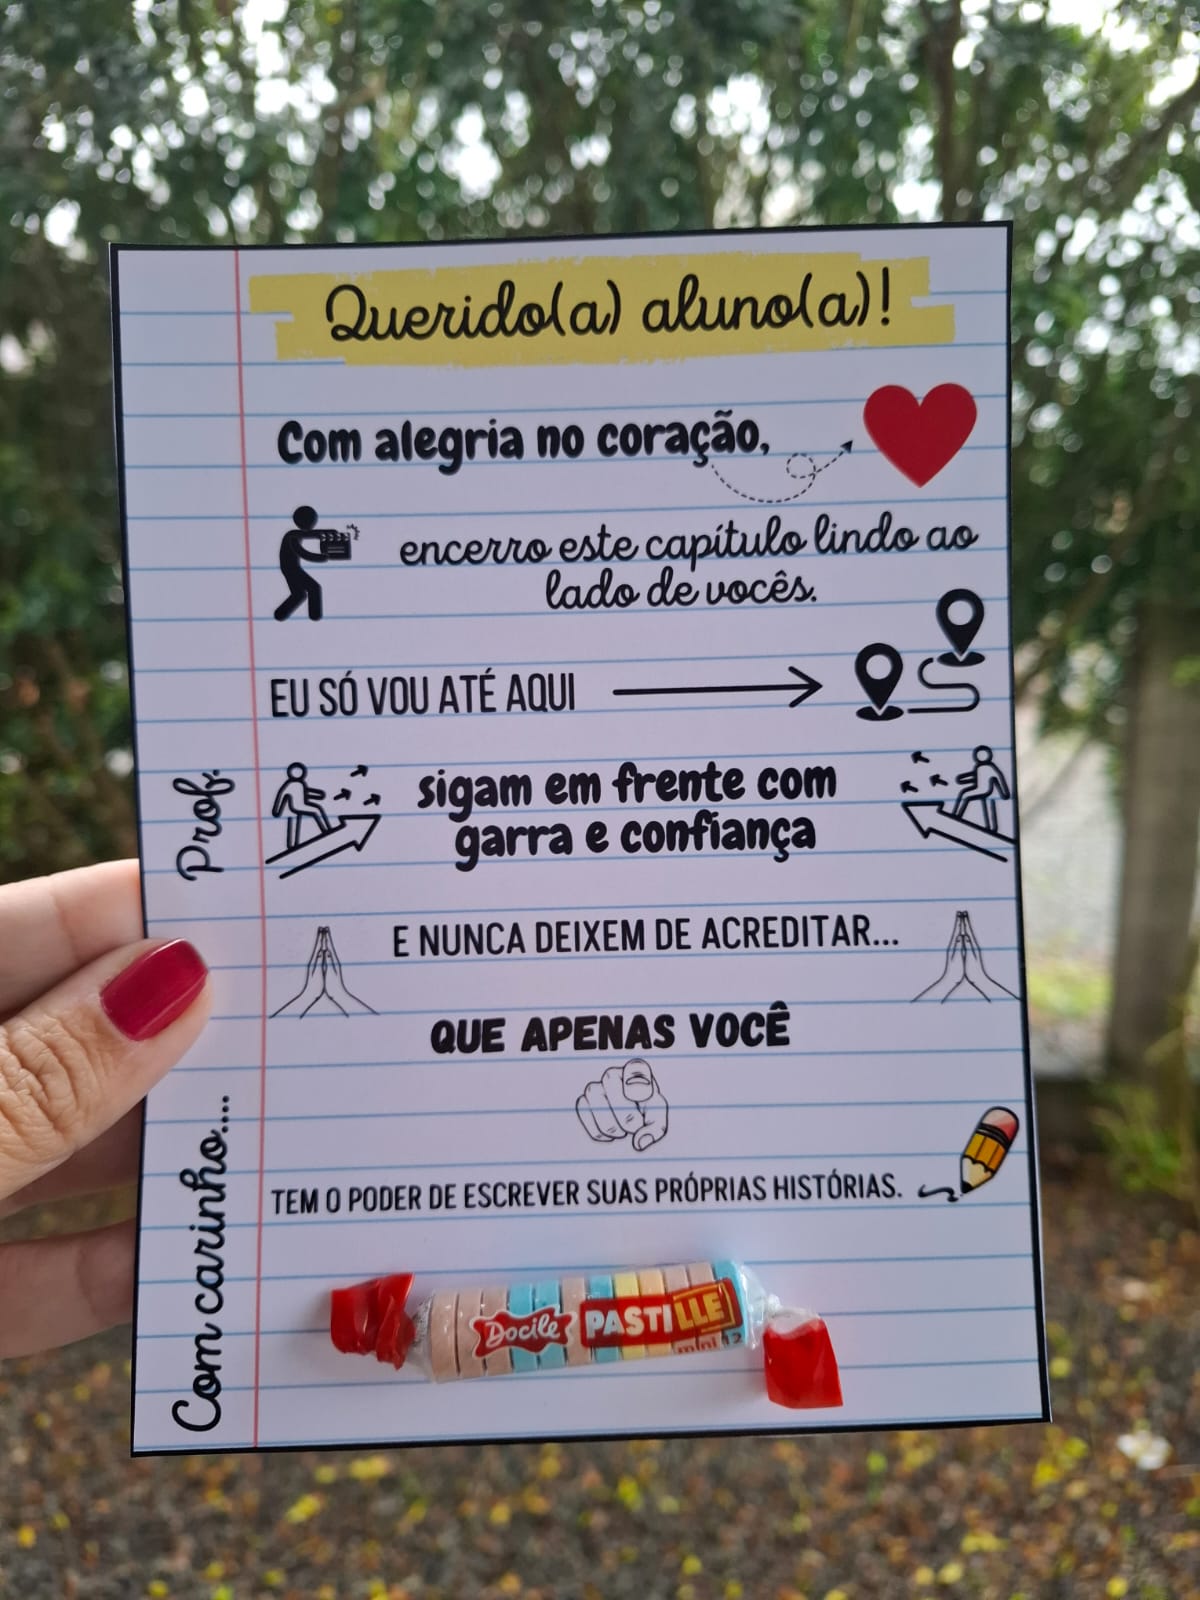 Querido(a) aluno(a)!
Com alegria no coração,
encerro este capítulo lindo ao
lado de vocês.
EU SÓ VOU ATÉ AQUI
sigam em frente com
garra e confiança
E NUNCA DEIXEM DE ACREDITAR...
QUE APENAS VOCÊ
TEM O PODER DE ESCREVER SUAS PRÓPRIAS HISTÓRIAS.
Com carinho....
Prof.
Docile PASTILLE
mini 12